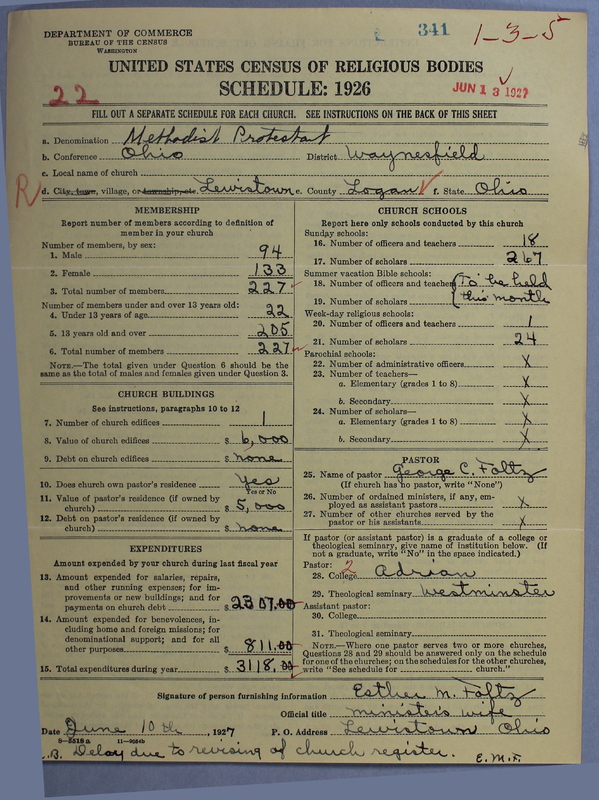 341
1-3-5
DEPARTMENT OF COMMERCE
BUREAU OF THE CENSUS
WASHINGTON
UNITED STATES CENSUS OF RELIGIOUS BODIES
SCHEDULE: 1926
22
JUN 13 1927
FILL OUT A SEPARATE SCHEDULE FOR EACH CHURCH. SEE INSTRUCTIONS ON THE BACK OF THIS SHEET
a. Denomination Methodist Protestat
b. Conference Ohio District Waynesfield
c. Local name of church
R d. City, town, village, or township, etc Lewistown e. County Logan f. State Ohio
MEMBERSHIP
Report number of members according to definition of
member in your church
Number of members, by sex:
1. Male 94
2. Female 133
3. Total number of members 227
Number of members under and over 13 years old:
4. Under 13 years of age 22
5. 13 years old and over 205
6. Total number of members 227
NOTE.—The total given under Question 6 should be the
same as the total of males and females given under Question 3.
CHURCH BUILDINGS
See instructions, paragraphs 10 to 12
7. Number of church edifices 1
8. Value of church edifices $ 6,000
9. Debt on church edifices $ none
10. Does church own pastor's residence Yes
Yes or No
11. Value of pastor's residence (if owned by
church) $ 5,000
12. Debt on pastor's residence (if owned by
church) $ none
EXPENDITURES
Amount expended by your church during last fiscal year
13. Amount expended for salaries, repairs,
and other running expenses; for im-
provements or new buildings; and for
payments on church debt $ 2307.00
14. Amount expended for benevolences, in-
cluding home and foreign missions; for
denominational support; and for all
other purposes $ 811.00
15. Total expenditures during year $ 3118.00
CHURCH SCHOOLS
Report here only schools conducted by this church
Sunday schools:
16. Number of officers and teachers 18
17. Number of scholars 267
Summer vacation Bible schools:
18. Number of officers and teachers To be held
19. Number of scholars this month
Week-day religious schools:
20. Number of officers and teachers 1
21. Number of scholars 24
Parochial schools:
22. Number of administrative officers X
23. Number of teachers—
a. Elementary (grades 1 to 8) X
b. Secondary X
24. Number of scholars—
a. Elementary (grades 1 to 8) X
b. Secondary X
PASTOR
25. Name of pastor George C. Foltz
(If church has no pastor, write "None")
26. Number of ordained ministers, if any, em-
ployed as assistant pastors X
27. Number of other churches served by the
pastor or his assistants X
If pastor (or assistant pastor) is a graduate of a college or
theological seminary, give name of institution below. (If
not a graduate, write "No" in the space indicated.)
Pastor: 2
28. College Adrian
29. Theological seminary Westminster
Assistant pastor:
30. College
31. Theological seminary
NOTE.—Where one pastor serves two or more churches,
Questions 28 and 29 should be answered only on the schedule
for one of the churches; on the schedules for the other churches,
write "See schedule for church."
Signature of person furnishing information Esther M. Foltz
Official title minister's wife
Date June 10th, 1927 P. O. Address Lewistown Ohio
8-5518a 11-9054b
.B. Delay due to revising of church register. E.M.F.